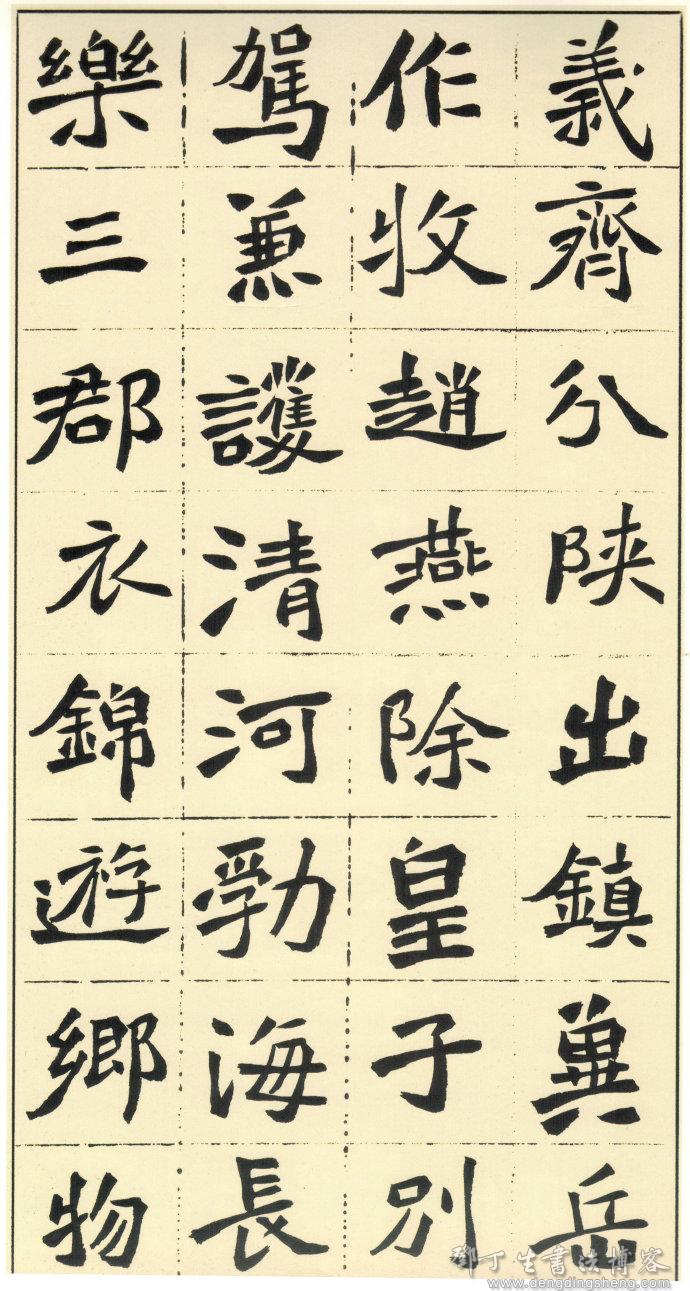 義齊分陝出鎮冀岳
作牧趙燕除皇子別
駕兼護清河勃海長
樂三郡衣錦遊鄉物
鄧丁生書法博客
www.dengdingsheng.com